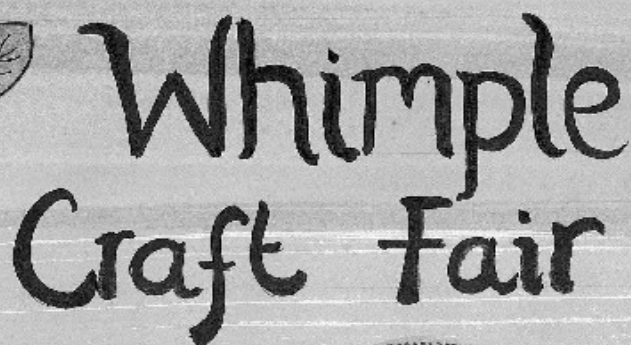 Whimple
Craft Fair